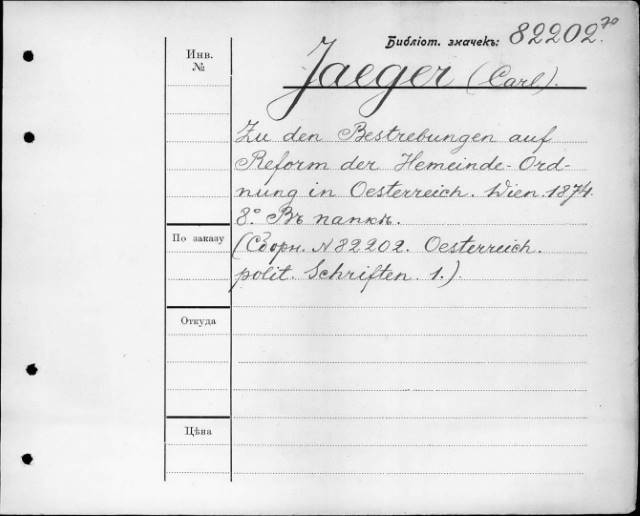 Библіот. значекъ: 82202.70
Инв. №
Jaeger (Carl).
Zu den Bestrebungen auf
Reform der Hemeinde-Ord-
nung in Oesterreich. Wien. 1874.
8.° Въ папкѣ.
По заказу
(Сборн. N 82202. Oesterreich.
polit. Schriften. 1.)
Откуда
Цѣна